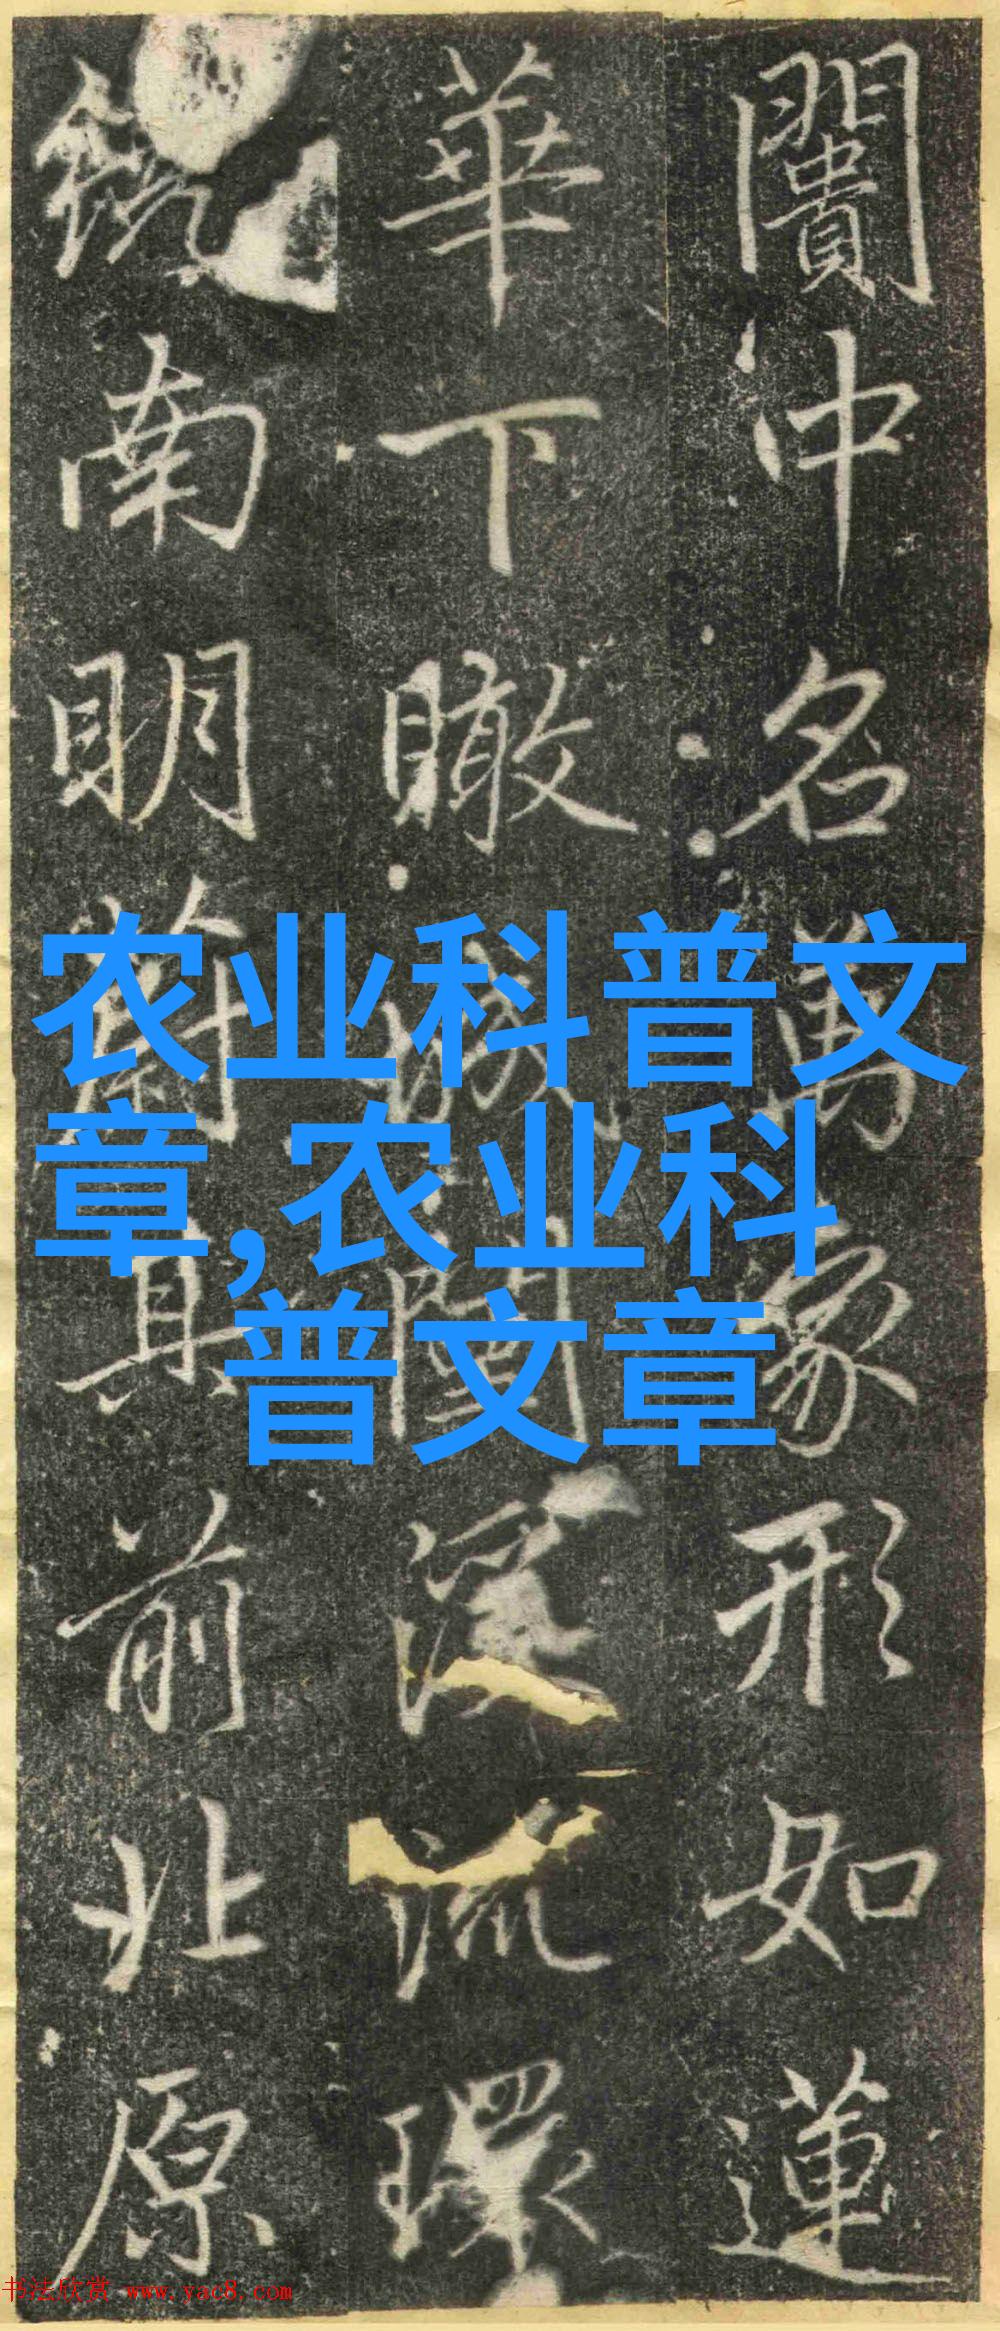 闠中名萬象形如蓮
華下瞰城闉深流環
鎮南明蔚其前北原
农业科普文
章,农业科
普文章
书法欣赏 www.yac8.com